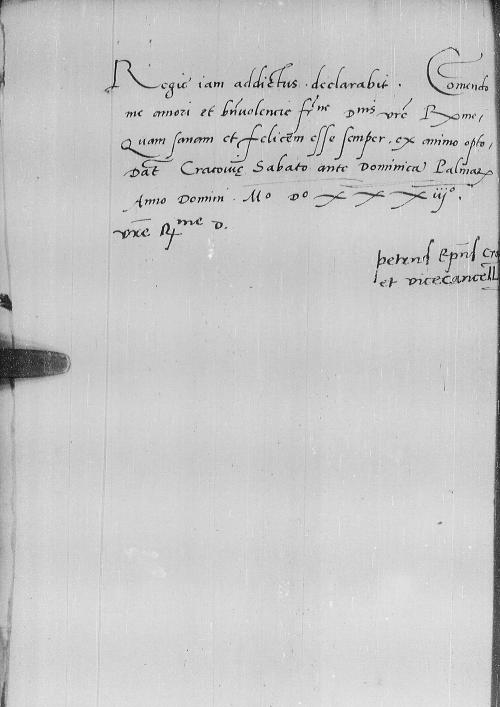 Regie iam addictus declarabit. Comendo
me amori et bn̄volencie fr̄ne Dnis vr̄e Rme,
Quam sanam et felicem esse semper ex animo opto,
Dat̄ Cracovie Sabato ante Dominica Palmaꝝ
Anno Domin. Mº Dº XXXiijº.
vr̄e Rme D.
petrus Ep̄us Cra
et vicecancell